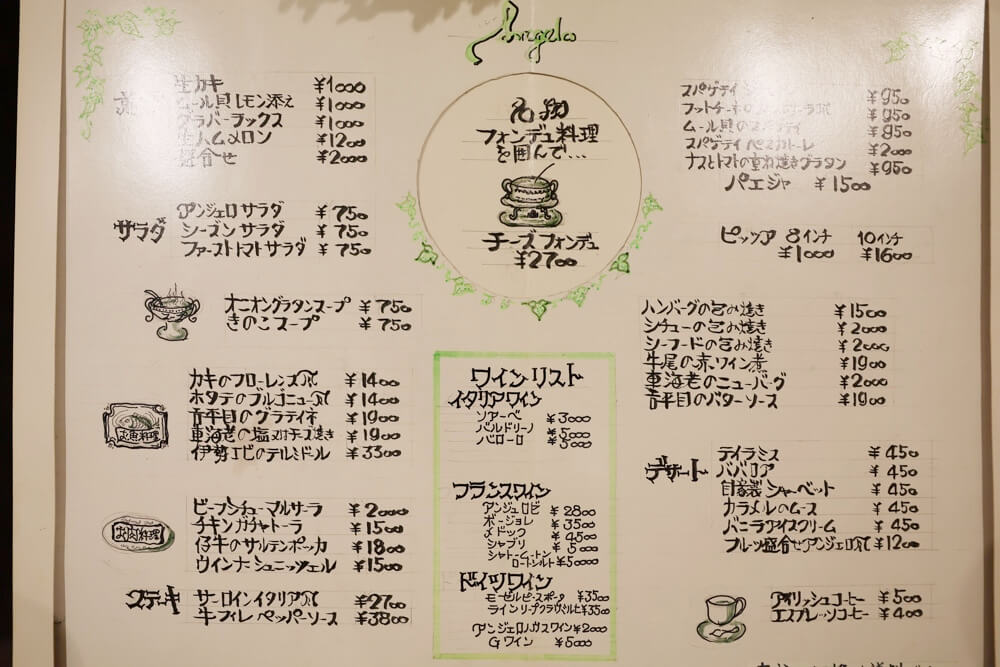 Angelo
生カキ ¥1000
ムール貝レモン添え ¥1000
グラバーラックス ¥1000
生ハムメロン ¥1200
盛合せ ¥2000
サラダ
アンジェロサラダ ¥750
シーズンサラダ ¥750
ファーストトマトサラダ ¥750
オニオングラタンスープ ¥750
きのこスープ ¥750
お魚料理
カキのフローレンス風 ¥1400
ホタテのブルゴニュー風 ¥1400
舌平目のグラティネ ¥1900
車海老の塩 チーズ焼き ¥1900
伊勢エビのテルミドール ¥3300
お肉料理
ビーフシチューマルサーラ ¥2000
チキンガチャトーラ ¥1500
仔牛のサルテンポッカ ¥1800
ウインナーシュニッツェル ¥1500
ステーキ
サーロインイタリア風 ¥2700
牛フィレペッパーソース ¥3800
名物
フォンデュ料理
を囲んで…
チーズフォンデュ
¥2700
ワインリスト
イタリアワイン
ソアーベ ¥3000
バルドリーノ ¥3000
バローロ ¥5000
フランスワイン
アンジュロゼ ¥2800
ボージョレ ¥3500
メドック ¥4500
シャブリ ¥5000
シャトームートン
ロートシルト ¥50000
ドイツワイン
モーゼルピースポータ ¥3500
ラインリープクラウミルヒ ¥3500
アンジェロハウスワイン ¥2000
Gワイン ¥5000
スパゲティ ¥950
フットチーネ ¥950
ムール貝のスパゲティ ¥950
スパゲティペスカトーレ ¥2000
ナスとトマトの重ね焼きグラタン ¥950
パエジャ ¥1500
ピッツア 8インチ 10インチ
¥1000 ¥1600
ハンバーグの包み焼き ¥1500
シチューの包み焼き ¥2000
シーフードの包み焼き ¥2000
牛尾の赤ワイン煮 ¥1900
車海老のニューバーグ ¥2000
舌平目のバターソース ¥1900
デザート
テイラミス ¥450
ババロア ¥450
自家製シャーベット ¥450
カラメルのムース ¥450
バニラアイスクリーム ¥450
フルーツ盛合せアンジェロ風 ¥1200
アイリッシュコーヒー ¥500
エスプレッソコーヒー ¥400